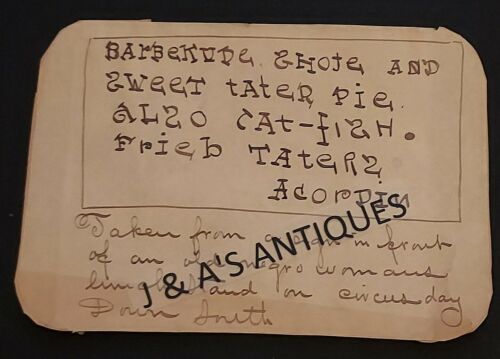 BARBEKUDE SHOTE AND
SWEET TATER PIE.
ALSO CAT-FISH.
FrieD TATERS
ACORDIN
Taken from a sign in front
of an old negro womans
lunch stand on circus day
Down South
J & A'S ANTIQUES